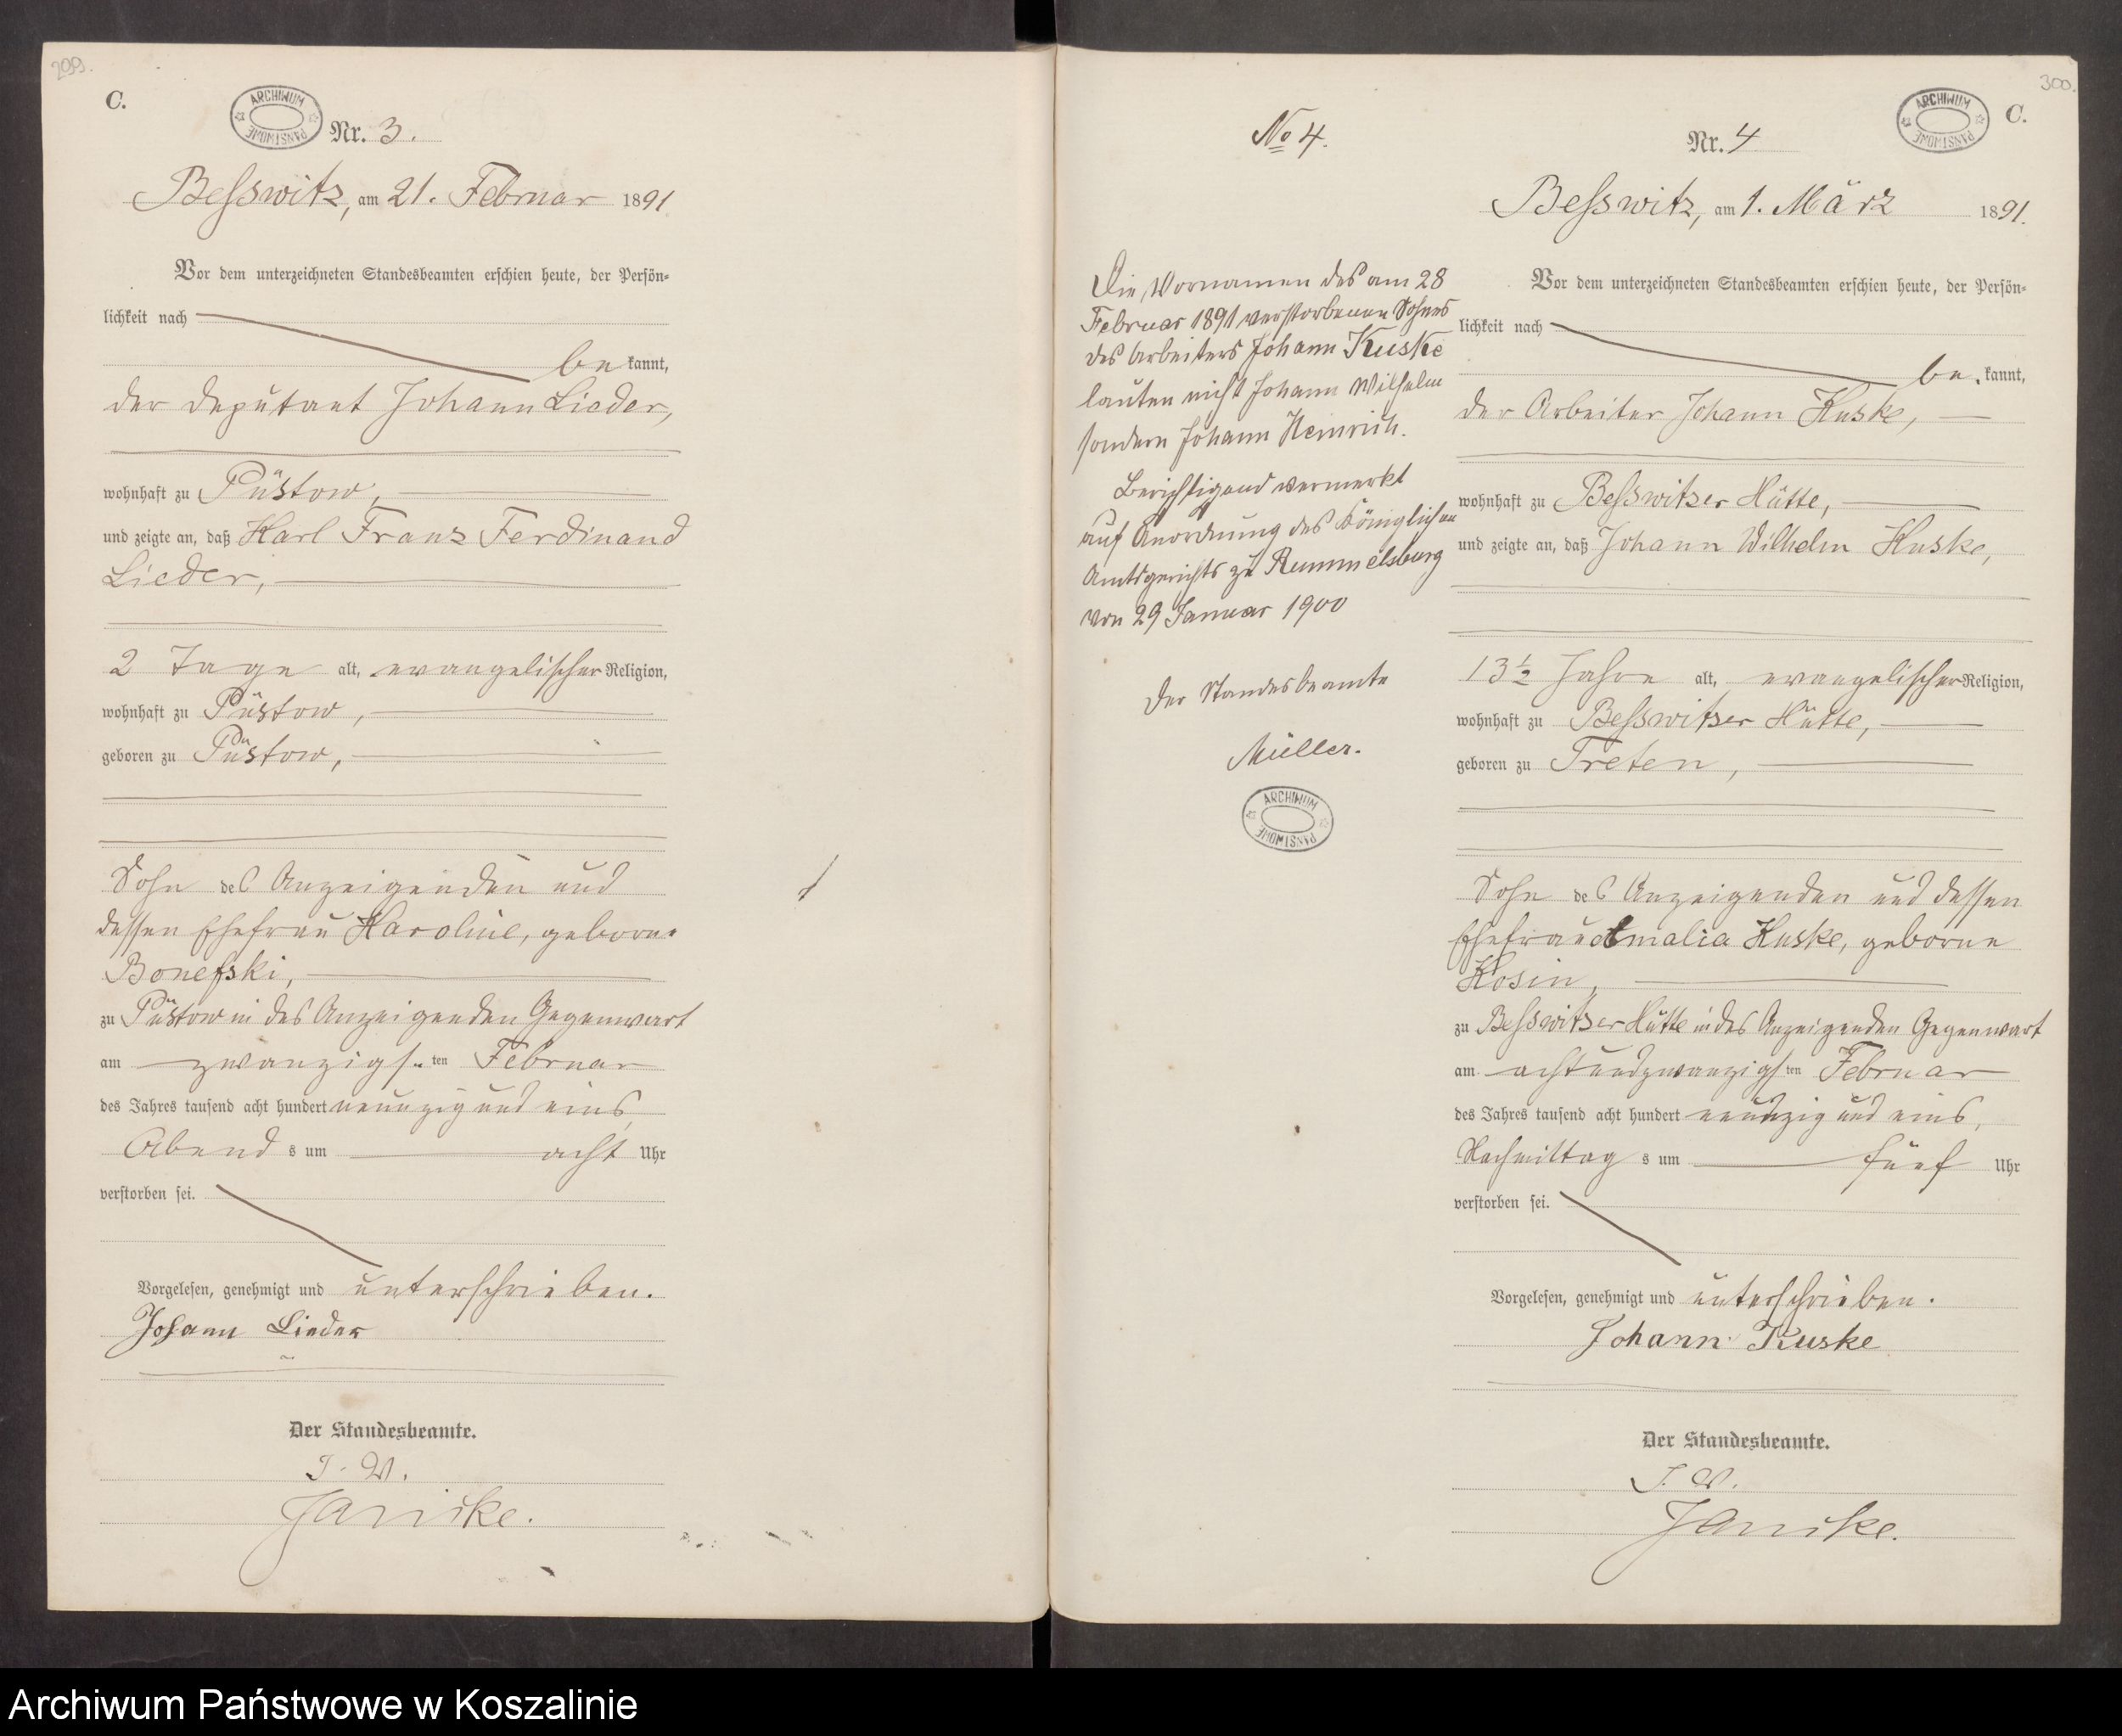 299.
C.
ARCHIWUM PAŃSTWOWE
Nr. 3.
Beßswitz, am 21. Februar 1891
Vor dem unterzeichneten Standesbeamten erschien heute, der Persön-
lichkeit nach
be kannt,
der Deputant Johann Lieder,
wohnhaft zu Püstow,
und zeigte an, daß Karl Franz Ferdinand
Lieder,
2 Tage alt, evangelischer Religion,
wohnhaft zu Püstow,
geboren zu Püstow,
Sohn des Anzeigenden und
dessen Ehefrau Karoline, geborne
Bonefski,
zu Püstow in des Anzeigenden Gegenwart
am zwanzigsten Februar
des Jahres tausend acht hundert neunzig und eins,
Abend s um acht Uhr
verstorben sei.
Vorgelesen, genehmigt und unterschrieben.
Johann Lieder
Der Standesbeamte.
I. V.
Janike.
300.
C.
ARCHIWUM PAŃSTWOWE
No 4.
Die Vornamen des am 28
Februar 1891 verstorbenen Sohnes
des Arbeiters Johann Kuske
lauten nicht Johann Wilhelm
sondern Johann Heinrich.
Berichtigend vermerkt
auf Anordnung des Königlichen
Amtsgerichts zu Rummelsburg
von 29 Januar 1900
Der Standesbeamte
Müller.
ARCHIWUM PAŃSTWOWE
Nr. 4
Beßswitz, am 1. März 1891.
Vor dem unterzeichneten Standesbeamten erschien heute, der Persön-
lichkeit nach
be kannt,
der Arbeiter Johann Kuske,
wohnhaft zu Beßswitzer Hütte,
und zeigte an, daß Johann Wilhelm Kuske,
13½ Jahre alt, evangelischer Religion,
wohnhaft zu Beßswitzer Hütte,
geboren zu Treten,
Sohn des Anzeigenden und dessen
Ehefrau Amalia Kuske, geborne
Kosin,
zu Beßswitzer Hütte in des Anzeigenden Gegenwart
am achtundzwanzigsten Februar
des Jahres tausend acht hundert neunzig und eins,
Nachmittag s um fünf Uhr
verstorben sei.
Vorgelesen, genehmigt und unterschrieben.
Johann Kuske
Der Standesbeamte.
I. V.
Janike.
Archiwum Państwowe w Koszalinie